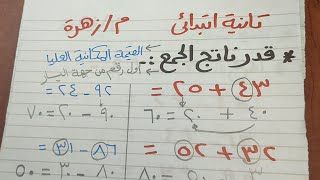 تانية ابتدائى م/زهرة
* قدر ناتج الجمع:- القيمة المكانية العليا
أول رقم من جهة اليسار
٤٣ + ٢٥ = ٩٢ - ٢٤ =
٤٠ + ٢٠ = ٦٠ ٩٠ - ٢٠ = ٧٠
٣٢ + ٥٢ = ٨٦ - ٣١ =
٨٠ - ٣٠ = ٥٠